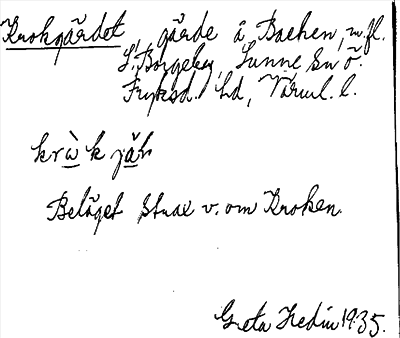 Krokgärdet, gärde å Backen, m.fl.
S. Borgeby, Sunne sn ö.
Fryksd. hd, Värml. l.
krὼk jäṙ
Beläget strax v. om Kroken.
Greta Hedin 1935.